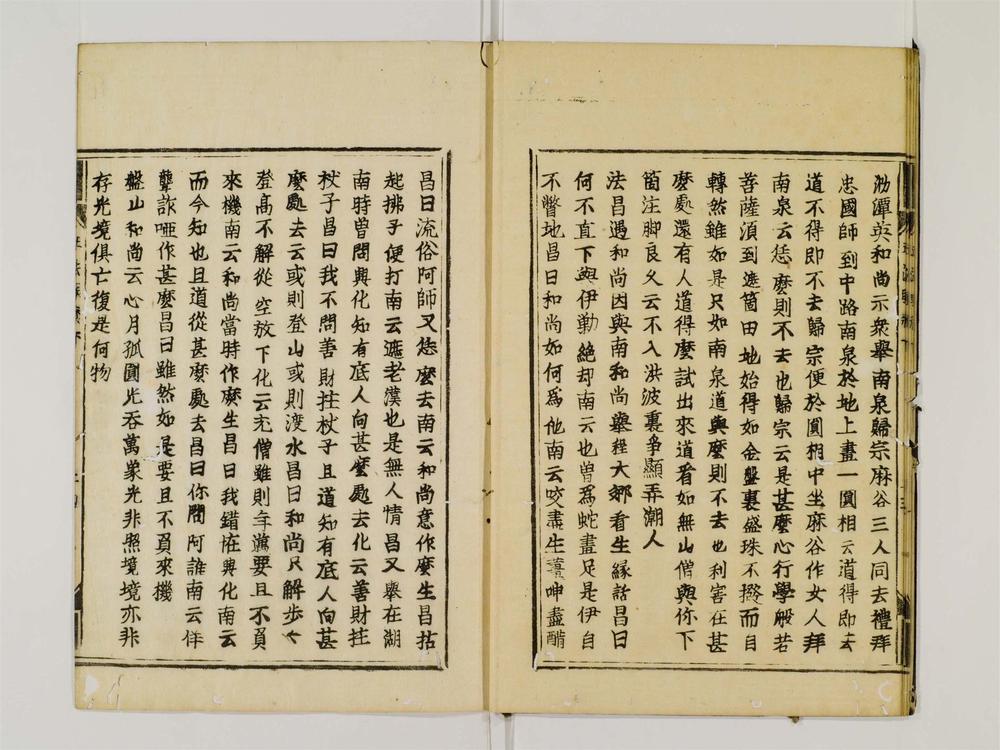 泐潭英和尚示衆舉南泉歸宗麻谷三人同去禮拜
忠國師到中路南泉於地上畫一圓相云道得即去
道不得即不去歸宗便於圓相中坐麻谷作女人拜
南泉云恁麼則不去也歸宗云是甚麼心行學般若
菩薩須到遮箇田地始得如金盤裏盛珠不撥而自
轉然雖如是只如南泉道與麼則不去也利害在甚
麼處還有人道得麼試出來道看如無山僧與你下
箇注脚良久云不入洪波裏爭顯弄潮人
法昌遇和尚因與南和尚舉程大夘看生緣話昌曰
何不直下與伊勦絶却南云也曾爲蛇畫足是伊自
不瞥地昌曰和尚如何爲他南云咬盡生薑呷盡醋
昌曰流俗阿師又恁麼去南云和尚意作麼生昌拈
起拂子便打南云遮老漢也是無人情昌又舉在湖
南時曾問興化知有底人向甚麼處去化云善財拄
杖子昌曰我不問善財拄杖子且道知有底人向甚
麼處去云或則登山或則渡水昌曰和尚只解歩步
登高不解從空放下化云充僧雖則年邁要且不負
來機南云和尚當時作麼生昌曰我錯恠興化南云
而今知也且道從甚麼處去昌曰你問阿誰南云佯
聾詐啞作甚麼昌曰雖然如是要且不負來機
盤山和尚云心月孤圓光吞萬象光非照境境亦非
存光境俱亡復是何物